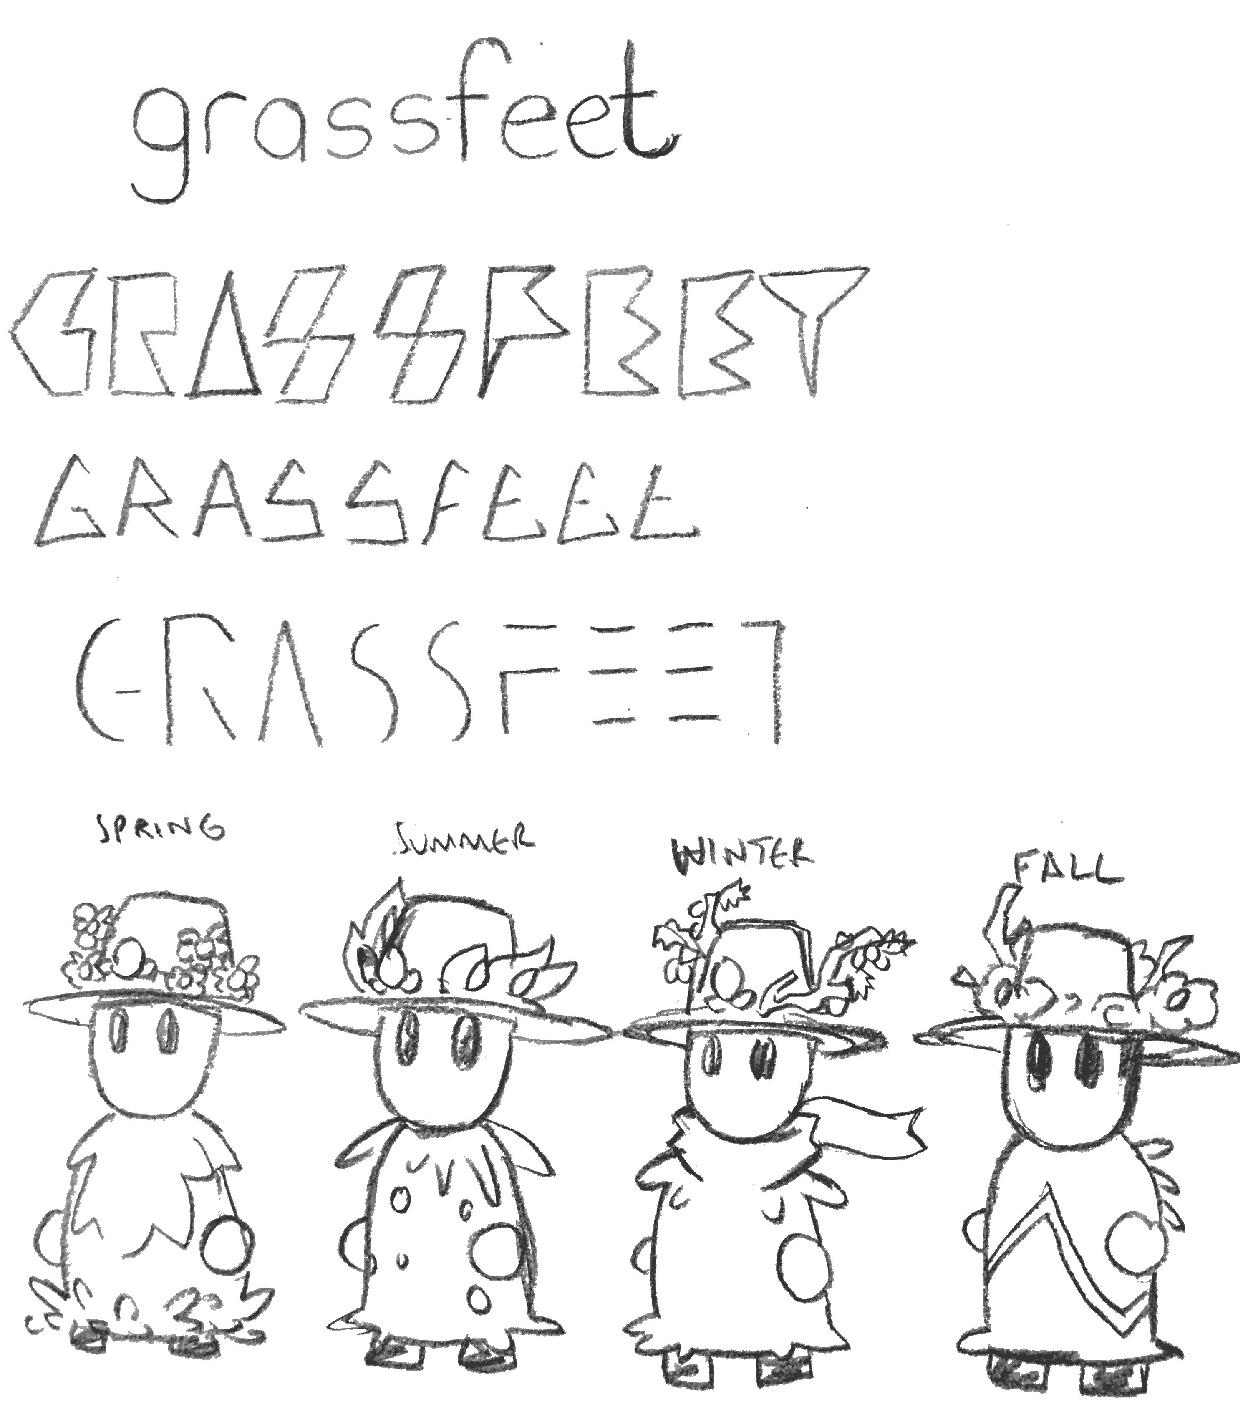 grassfeet
GRASSFEET
GRASSFEET
GRASSFEET
SPRING SUMMER WINTER FALL